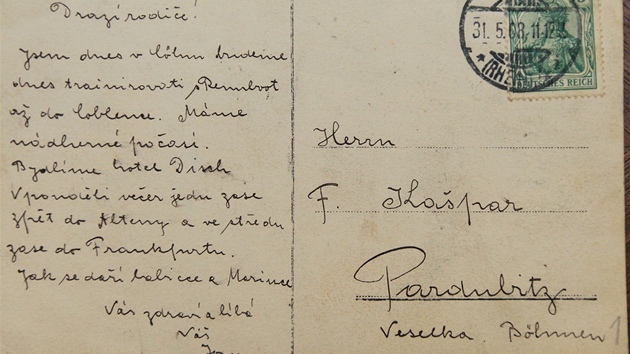 Drazí rodiče!
Jsem dnes v Cölnu budeme
dnes trainirovati s
až do Coblence. Máme
nádherné počasí.
Bydlíme hotel Disch
V pondělí večer jedu zase
zpět do Alteny a ve středu
zase do Frankfurtu.
Jak se daří babicce a Marince
Vás zdraví a líbá
Váš
31.5.08.11-12
(RH
DEUTSCHES REICH
Herrn
F. Kašpar
Pardubitz
Veselka Böhmen
1